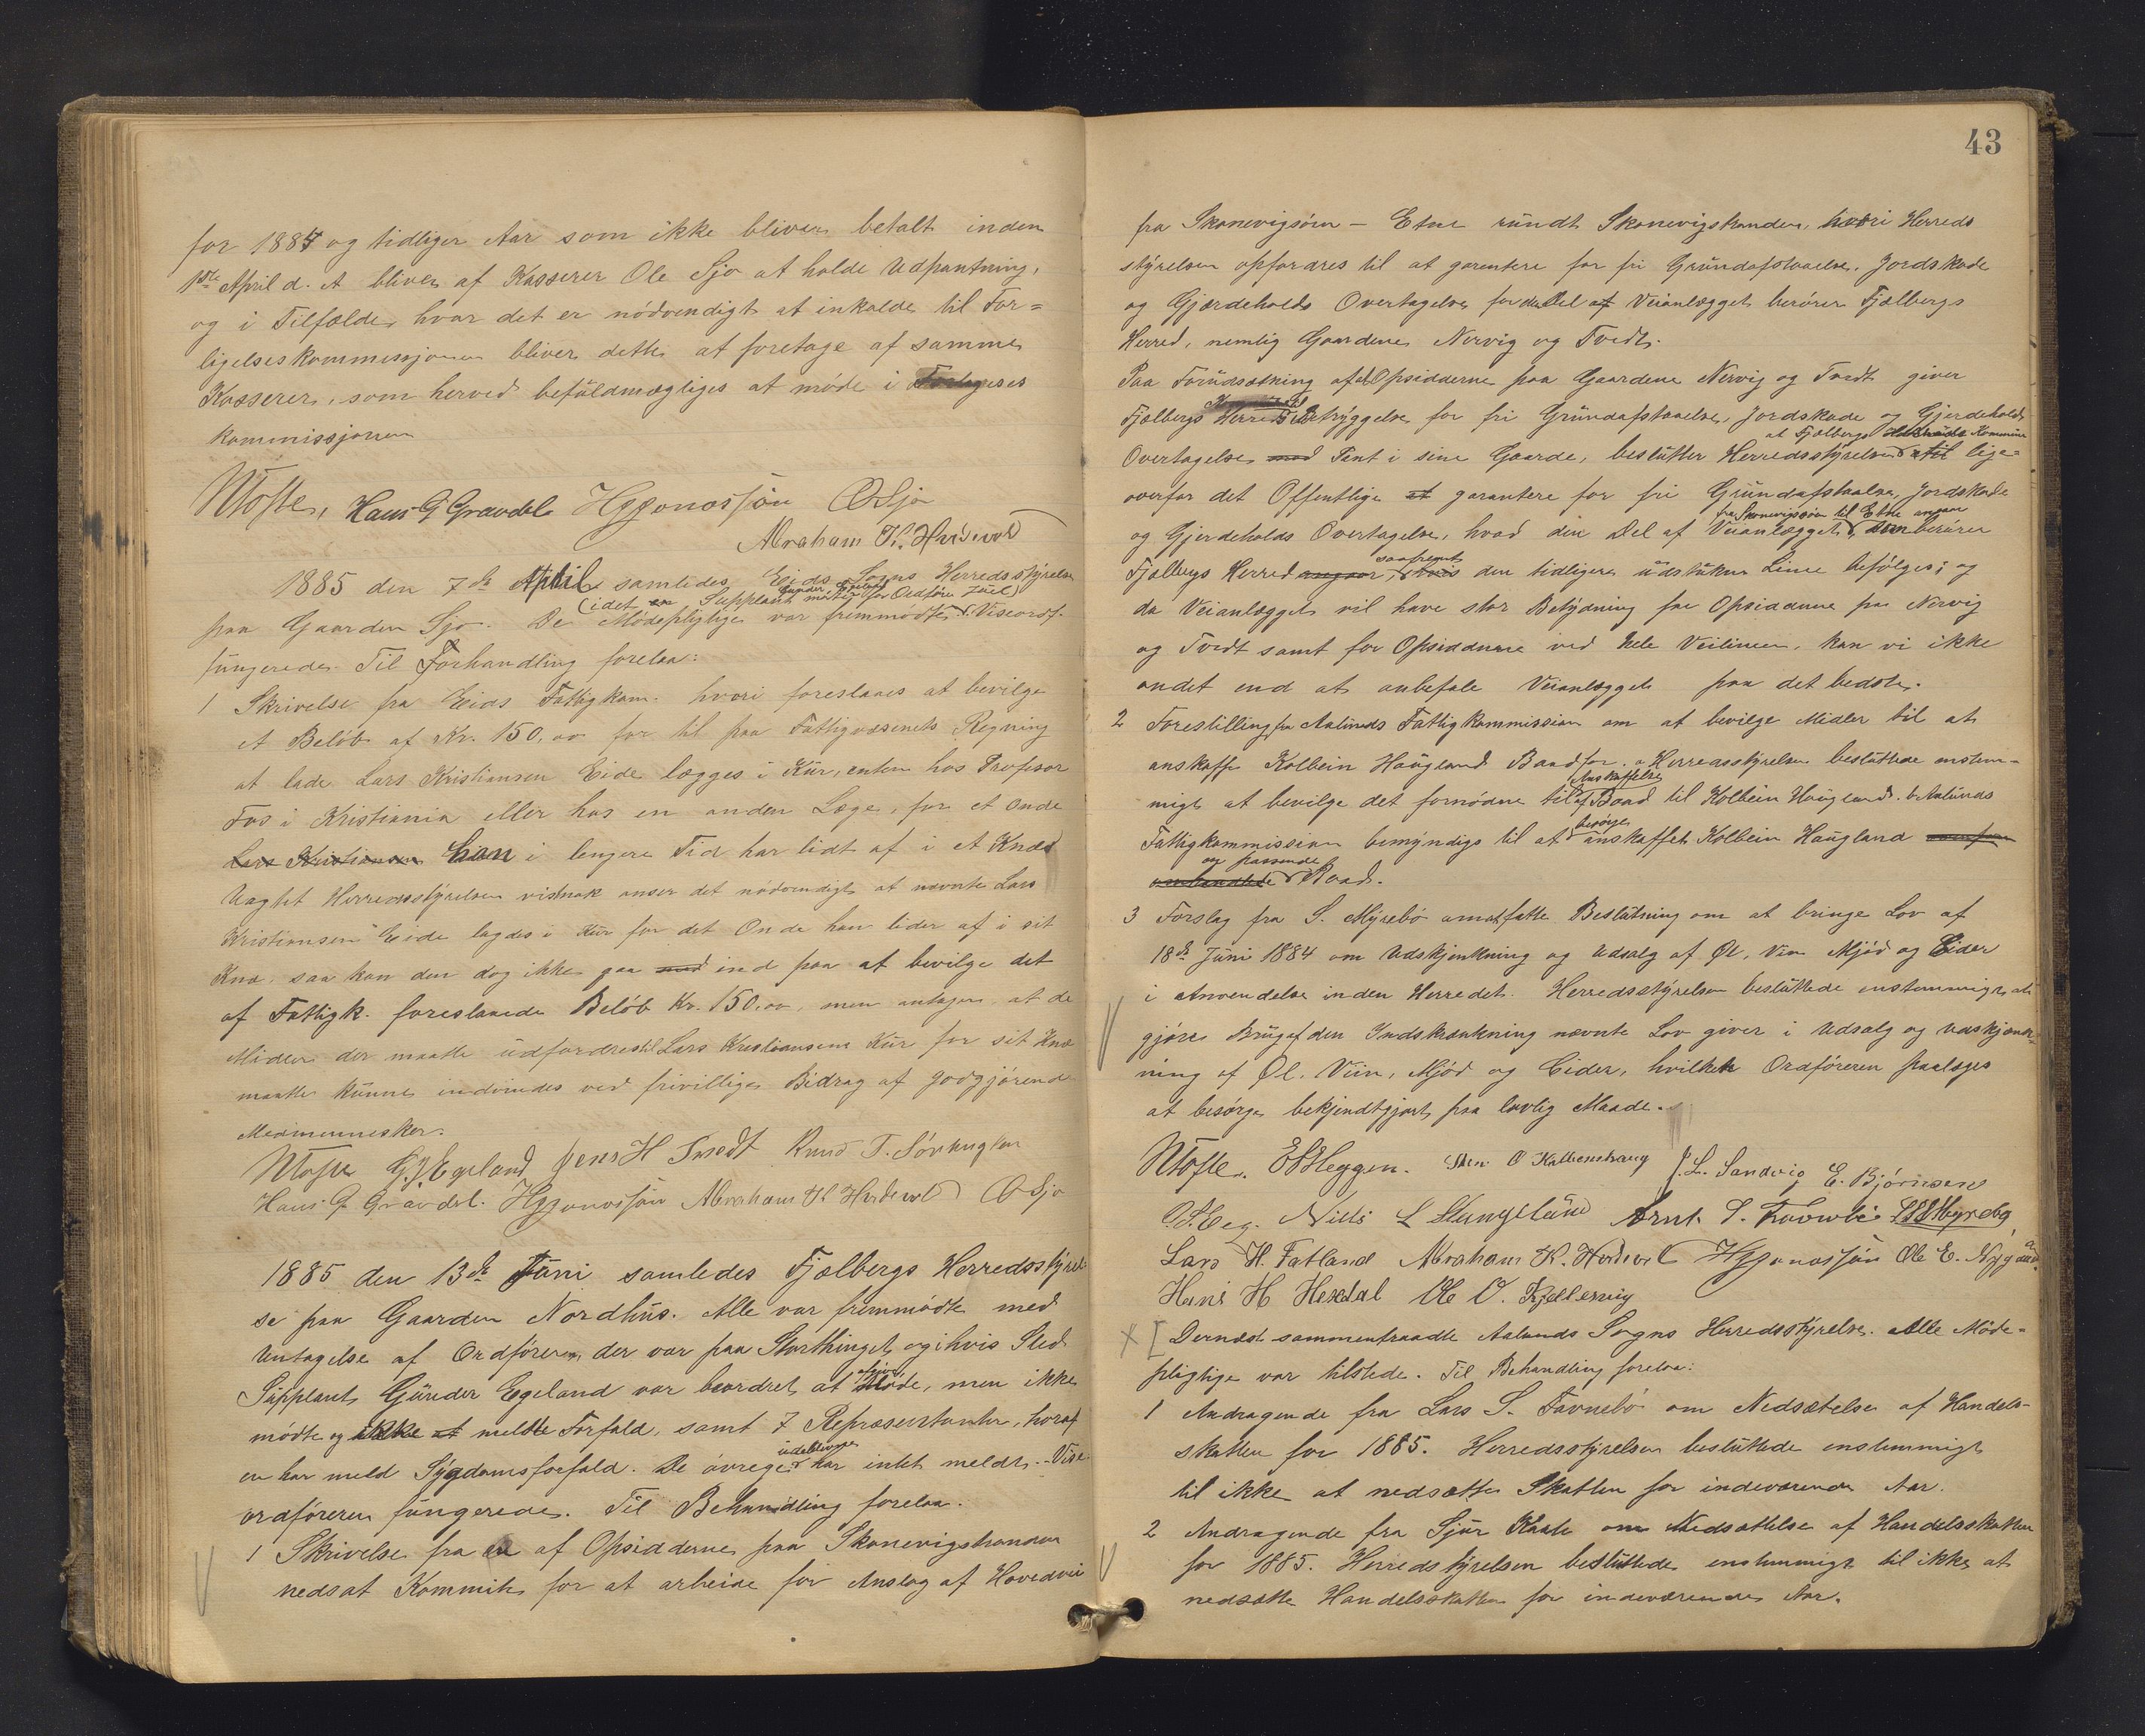 for 1884 og tidliger Aar som ikke bliver betalt inden
1ste April d. A bliver af Kasserer Ole Sjo at holde Udpantning,
og i Tilfælde, hvor det er nödvendigt at inkalde til For=
ligelseskommissjonen bliver dette at foretage af samme
Kasserer, som herved befuldmægtiges at möde i Forligeses
kommissjonen
Hans G Gravdal Hggonossjön O Sjo
Abraham K.
1885 den 7de April samledes Eids Sogns Herredsstyrelse
(idet en Supplant Gunder Egeland mødte for Ordfører Juel)
paa Gaarden Sjo. De Mödepligtige var fremmödte. Viseordf.
fungerede. Til Forhandling forelaa:
1 Skrivelse fra Eids Fattigkom. hvori foreslaaes at bevilge
et Belöb af Kr. 150,00 for til paa Fattigvæsenets Regning
at lade Lars Kristiansen Eide lægges i Kur, enten hos Profesor
i Kristiania eller hos en anden Læge, for et Onde
Lars Kristiansen han i lengere Tid har lidt af i et Knæ
Uagtet Herredsstyrelsen vistnok anser det nödvendigt at nævnte Lars
Kristiansen Eide lagdes i Kur for det Onde han lider af i sit
Knæ, saa kan den dog ikke gaa med ind paa at bevilge det
af Fattigk. foreslaaede Belöb Kr. 150,00, men antager, at de
Midler der maatte udfordres til Lars Kristiansens Kur for sit Knæ
maatte kunne indvindes ved frivillige Bidrag af godgjörende
Medmennesker.
G.J. Egeland Jens H Tvedt Knud T.
Hans G Gravdal. Hggonossjön Abraham K O Sjo
1885 den 13de Juni samledes Fjælbergs Herredsstyrel
se paa Gaarden Nordhus. Alle var fremmödte med
Untagelse af Ordföreren, der var paa Storthinget og i hvis Sted
Supplant Gunder Egeland var beordret at afgive Möde, men ikke
mödte og ikke at meldte Forfald, samt 7 Repræsentanter, hvoraf
en har meld Sygdomsforfald. De övrege udeblevne har intet meldt. - Vise
ordföreren fungerede. Til Behandling forelaa.
1 Skrivelse fra en af Opsidderne paa Skonevigstranden
nedsat Kommite for at arbeide for Anslag af Hovedvei
43
fra Skonevigsöen - Etne rundt Skonevigstranden, hvori Herreds
styrelsen opfordres til at garentere for fri Grundafstaaelse, Jordskade
og Gjærdeholds Overtagelse for den Del af Veianlægget berörer Fjælbergs
Herred, nemlig Gaardene Nervig og Tvedt.
Paa Forudsætning af at Opsidderne paa Gaardene Nervig og Tvedt giver
Fjælbergs Herred Betryggelse for fri Grundafstaaelse, Jordskade og Gjerdeholds
at Fjælbergs Herreds Kommune
Overtagelse med Pant i sine Gaarde, beslutter Herredsstyrelsen at til lige=
overfor det Offentlige at garantere for fri Grundafstaalse, Jordskade
fra Skonevigsöen til Etne angaar
og Gjerdeholds Overtagelse, hvad den Del af Veianlægget, som berörer
saafremt
Fjælbergs Herred angaar, hvis den tidligere udstukne Linie befölges; og
da Veianlægget vil have stor Betydning for Opsidderne paa Nervig
og Tvedt samt for Opsidderne ved hele Veilinien, kan vi ikke
andet end at anbefale Veianlægget paa det bedste.
2 Forestilling fra Aalunds Fattigkommission om at bevilge Midler til at
anskaffe Kolbein Haugland Baad for. Herredsstyrelsen besluttede enstem-
migt at bevilge det fornödne til Anskaffelse af Baad til Kolbein Haugland. Aalunds
Fattigkommission bemyndiges til at besörge anskaffet Kolbein Haugland
en passende Baad.
3 Forslag fra S. Myrebö om at fatte Beslutning om at bringe Lov af
18de Juni 1884 om Udskjenkning og Udsalg af Øl, Vin Mjöd og Cider
i Anvendelse inden Herredet. Herredsstyrelsen besluttede enstemmigt at
gjöre Brug af den Indskrænkning nævnte Lov giver i Udsalg og Udskjænk-
ning af Øl, Viin, Mjöd og Cider, hvilket Ordföreren paalæges
at besörge bekjendtgjort paa lovlig Maade.
E Heggen. Sten O Kallevenhaug J. L. Sandvig E. Björnsen
Niels L Stangeland Arnt S. Myrebø
Lars H. Fatland Abraham K. Hggonossjön Ole E. Nygaard
Hans H Hexdal Ole O. Kjellesvig
x [ Dernæst sammentraadte Aalunds Sogns Herredsstyrelse. Alle Möde-
pligtige var tilstede. Til Behandling forelaa:
1 Andragende fra Lars S. Tavnebö om Nedsættelse af Handels-
skatten for 1885. Herredsstyrelsen besluttede enstemmigt
til ikke at nedsætte Skatten for indeværende Aar.
2 Andragende fra Sjur Kaate om Nedsættelse af Handelsskatten
for 1885. Herredsstyrelsen besluttede enstemmigt til ikke at
nedsætte Handelsskatten for indeværende Aar.